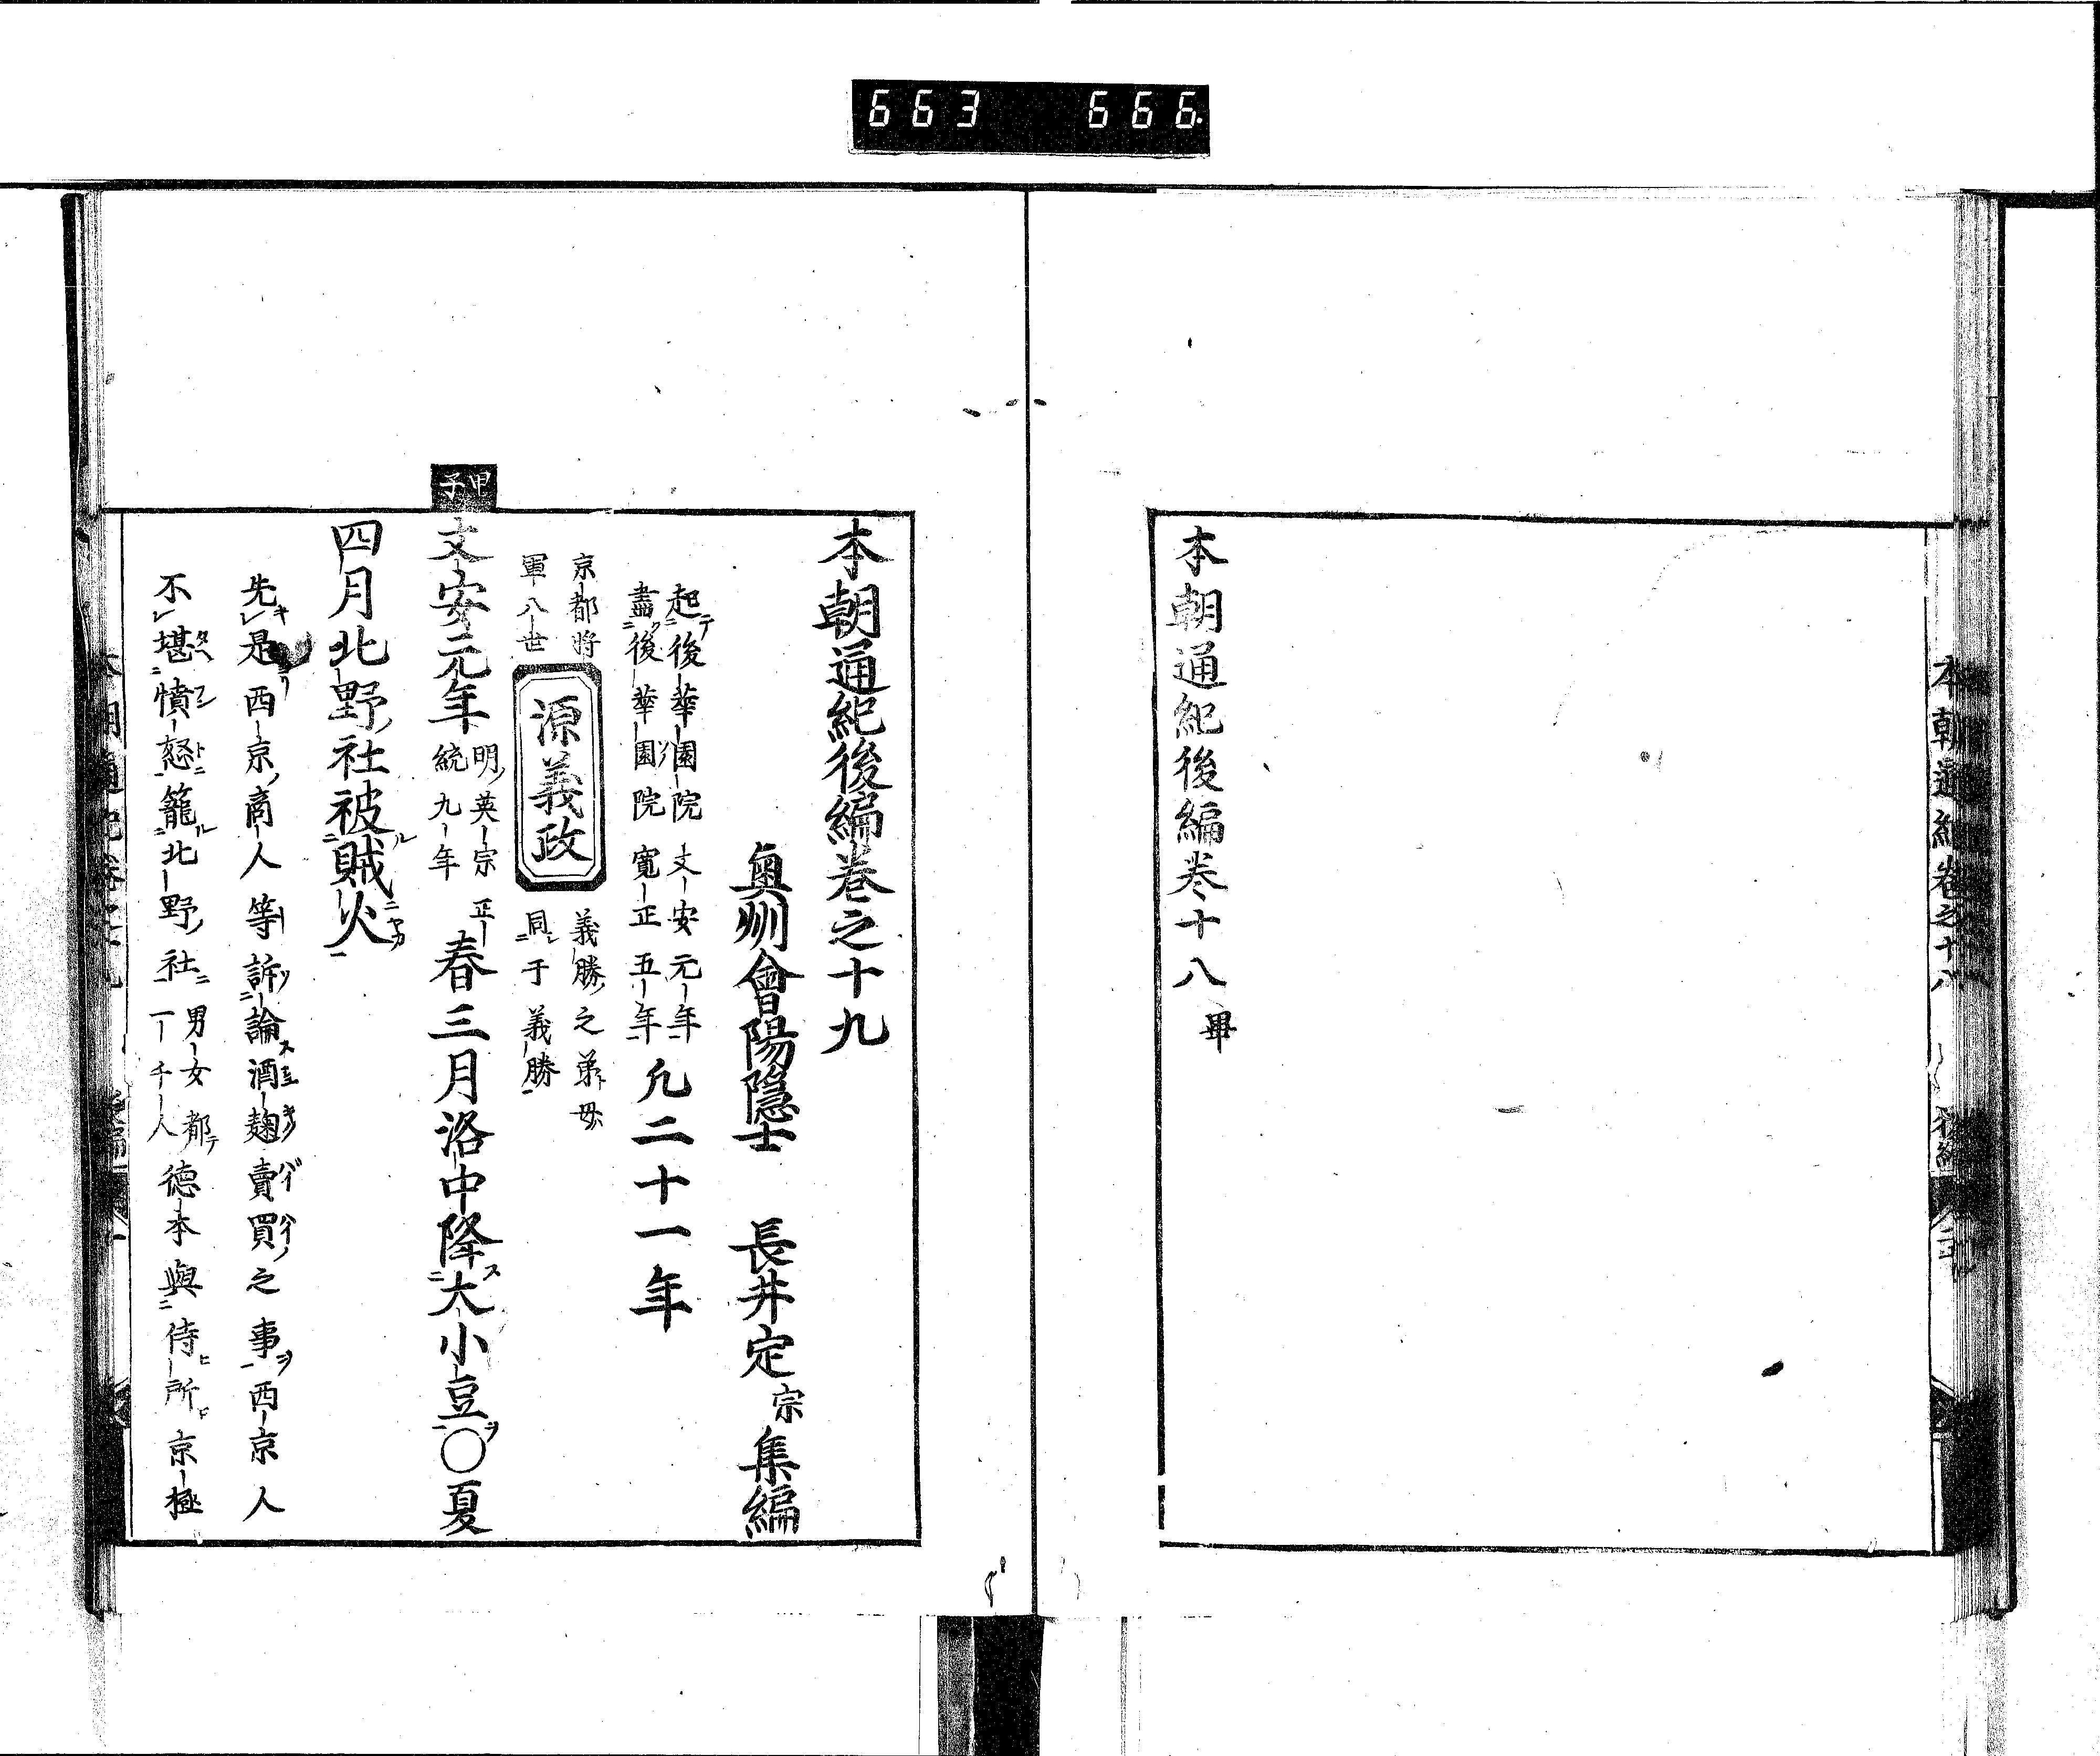 663 666
本朝通紀後編卷十八畢
本朝通紀後編卷之十九
奥州會陽隱士 長井定宗集編
起後華園院文安元年
盡後華園院寬正五年
凡二十一年
京都將
軍八世
源義政
義勝之弟母
同于義勝
甲子
文安元年
明英宗正
統九年
春三月洛中降大小豆〇夏
四月北野社被賊火
先是西京商人等訴論酒麹賣買之事西京人
不堪憤怒籠北野社
男女都
一千人
德本與侍所京極